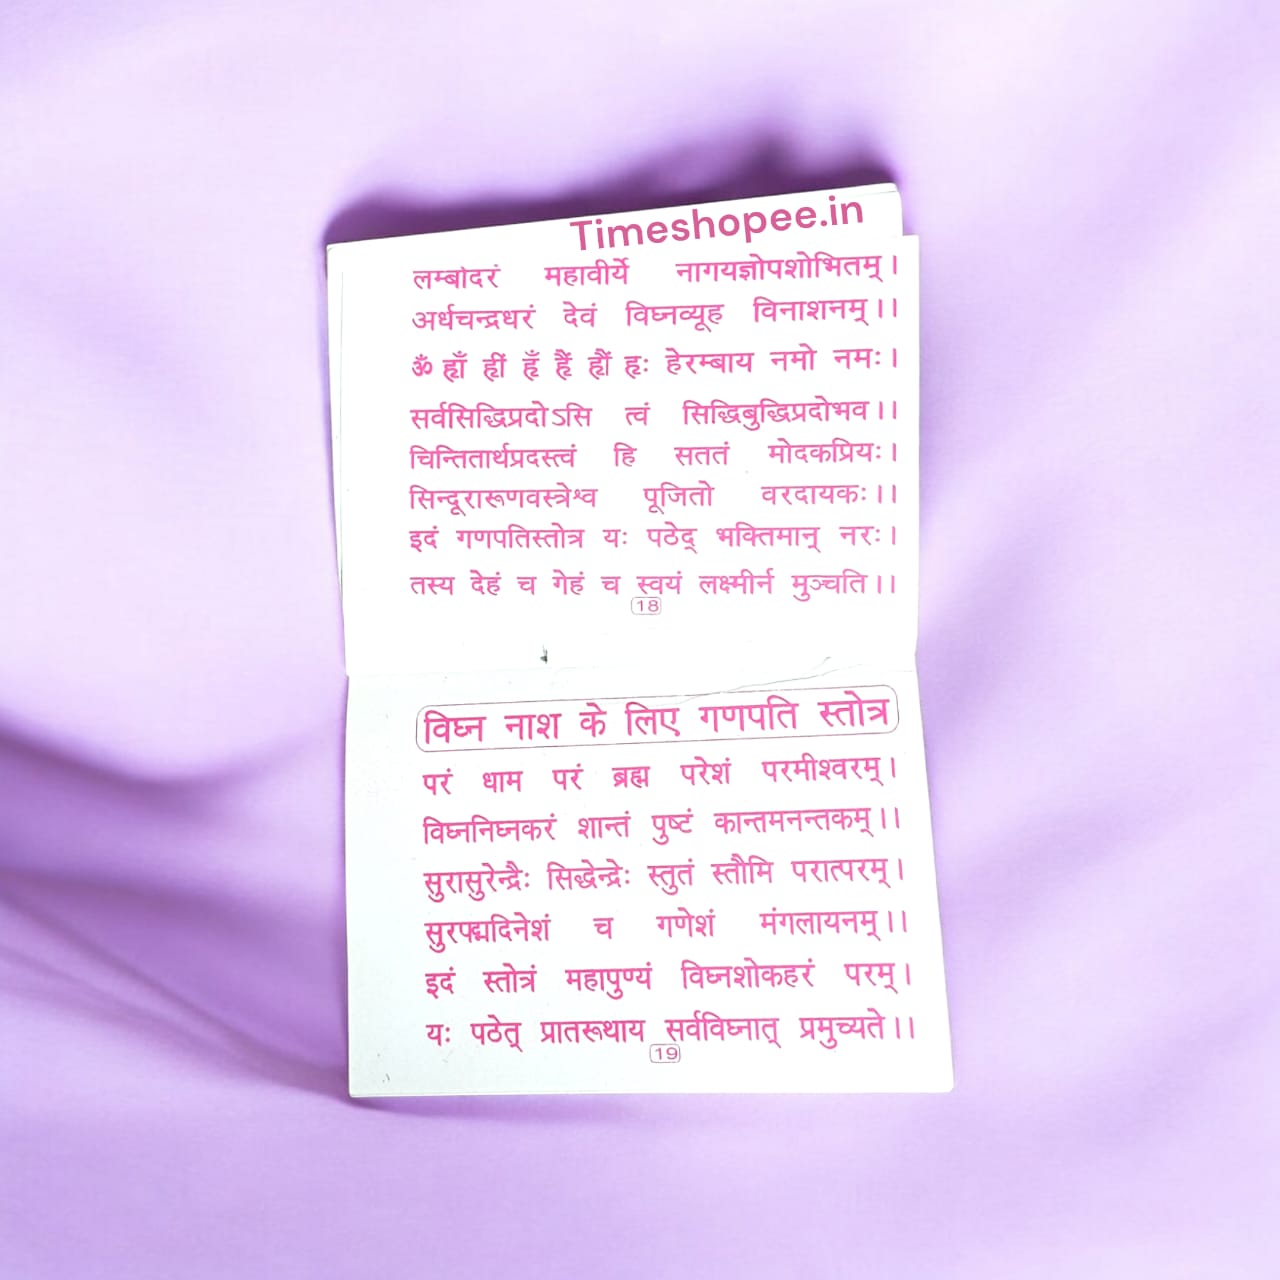 Timeshopee.in
लम्बोदरं महावीर्ये नागयज्ञोपशोभितम्।
अर्धचन्द्रधरं देवं विघ्नव्यूह विनाशनम्।।
ॐ ह्राँ ह्रीं ह्रूँ ह्रैं ह्रौं ह्रः हेरम्बाय नमो नमः।
सर्वसिद्धिप्रदोऽसि त्वं सिद्धिबुद्धिप्रदोभव।।
चिन्तितार्थप्रदस्त्वं हि सततं मोदकप्रियः।
सिन्दूरारूणवस्त्रेश्व पूजितो वरदायकः।।
इदं गणपतिस्तोत्र यः पठेद् भक्तिमान् नरः।
तस्य देहं च गेहं च स्वयं लक्ष्मीर्न मुञ्चति।।
18
विघ्न नाश के लिए गणपति स्तोत्र
परं धाम परं ब्रह्म परेशं परमीश्वरम्।
विघ्ननिघ्नकरं शान्तं पुष्टं कान्तमनन्तकम्।।
सुरासुरेन्द्रैः सिद्धेन्द्रेः स्तुतं स्तौमि परात्परम्।
सुरपद्मदिनेशं च गणेशं मंगलायनम्।।
इदं स्तोत्रं महापुण्यं विघ्नशोकहरं परम्।
यः पठेत् प्रातरूथाय सर्वविघ्नात् प्रमुच्यते।।
19